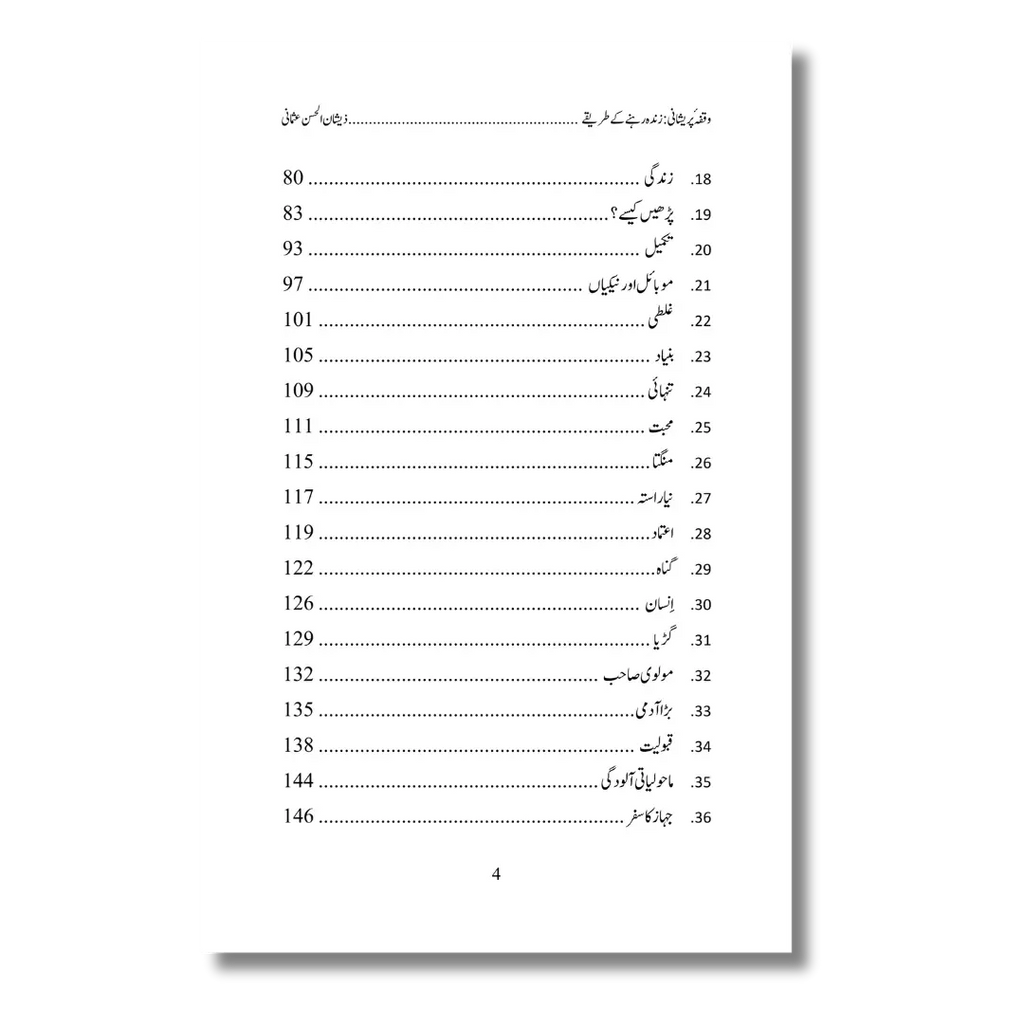 وقفۂ پریشانی: زندہ رہنے کے طریقے ........................................................ ذیشان الحسن عثمانی
18. زندگی ................................................................ 80
19. پڑھیں کیسے؟ .......................................................... 83
20. تکمیل ................................................................ 93
21. موبائل اور نیکیاں ..................................................... 97
22. غلطی ............................................................... 101
23. بنیاد ................................................................ 105
24. تنہائی ............................................................... 109
25. محبت ............................................................... 111
26. منگتا ................................................................ 115
27. نیا راستہ ............................................................. 117
28. اعتماد ................................................................ 119
29. گناہ ................................................................. 122
30. اِنسان .............................................................. 126
31. گڑیا ................................................................ 129
32. مولوی صاحب ...................................................... 132
33. بڑا آدمی ............................................................. 135
34. قبولیت ............................................................. 138
35. ماحولیاتی آلودگی ...................................................... 144
36. جہاز کا سفر ........................................................... 146
4